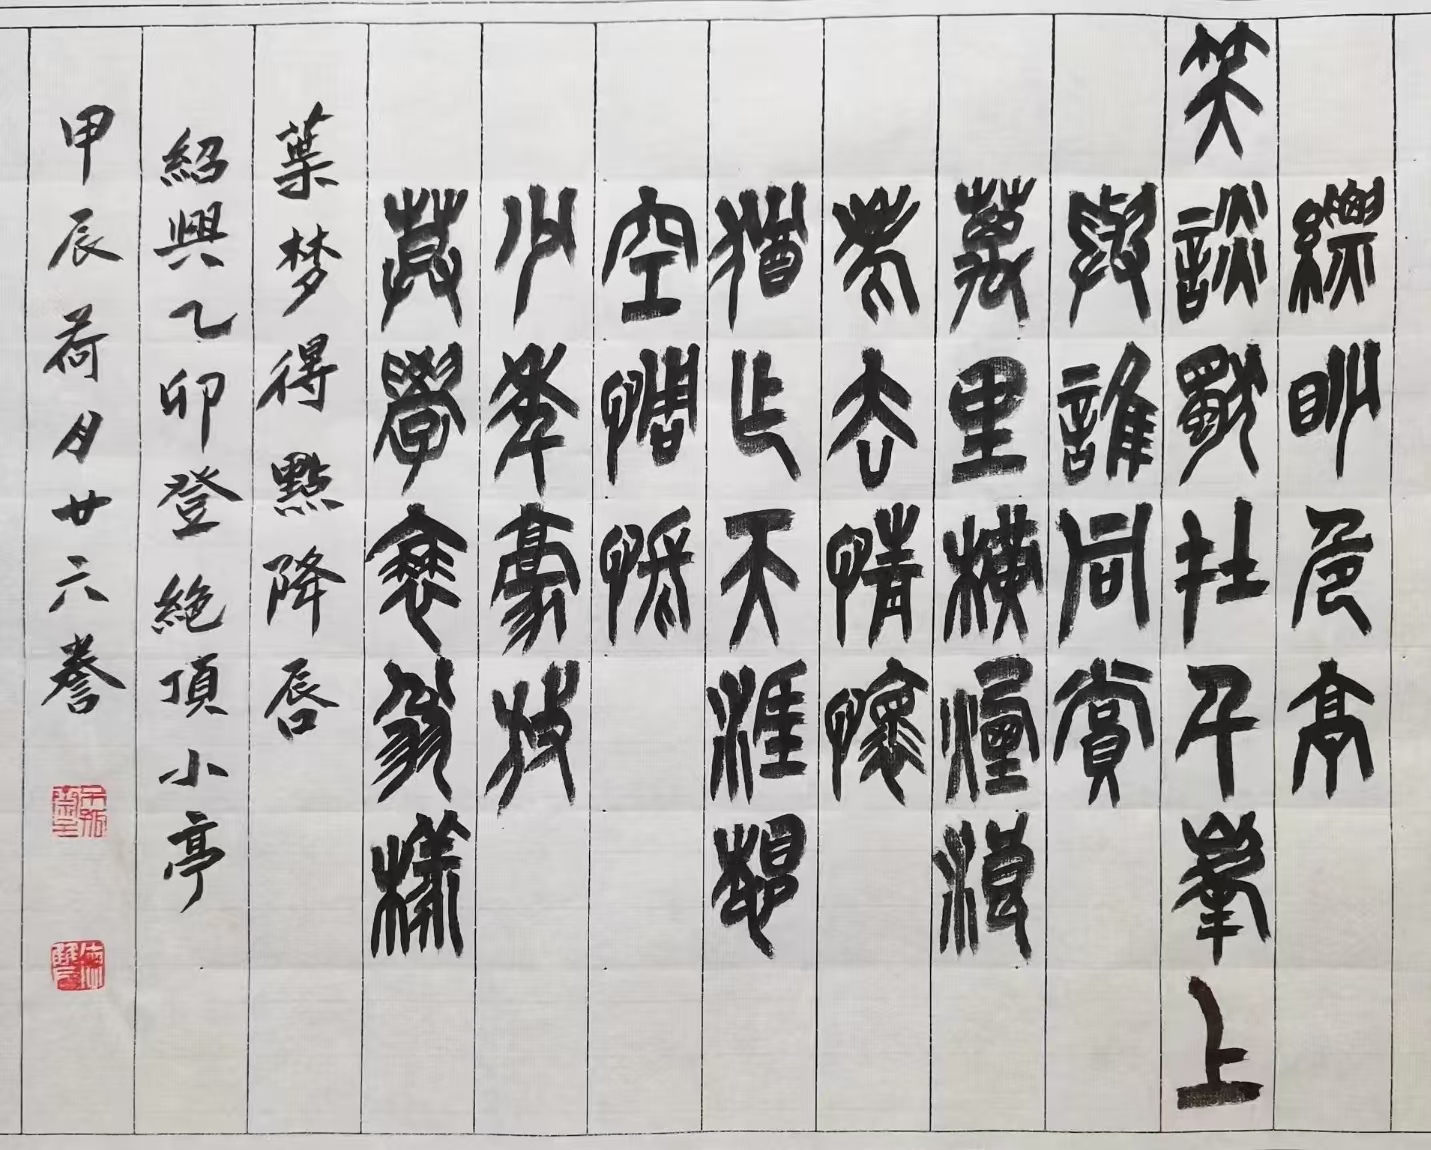 縹眇危亭
笑談獨在千峯上
與誰同賞
萬里橫煙浪
老去情懷
猶乍天涯想
空惆悵
少年豪放
莫學衰翁樣
葉梦得點降唇
紹興乙卯登絕頂小亭
甲辰荷月廿六誊